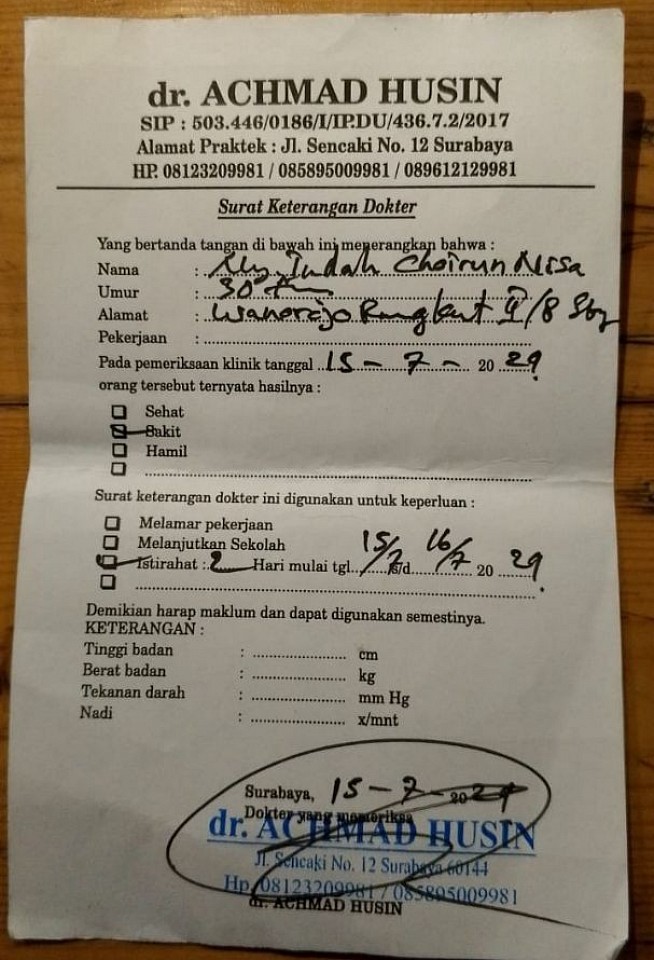 dr. ACHMAD HUSIN
SIP : 503.446/0186/I/IP.DU/436.7.2/2017
Alamat Praktek : Jl. Sencaki No. 12 Surabaya
HP. 08123209981 / 085895009981 / 089612129981
Surat Keterangan Dokter
Yang bertanda tangan di bawah ini menerangkan bahwa :
Nama : Indah Choirun Nisa
Umur : 30
Alamat : Wanorejo Rungkut II/8 Sby
Pekerjaan :
Pada pemeriksaan klinik tanggal 15 - 7 - 20 24
orang tersebut ternyata hasilnya :
Sehat
Sakit
Hamil
Surat keterangan dokter ini digunakan untuk keperluan :
Melamar pekerjaan
Melanjutkan Sekolah
Istirahat : 2 Hari mulai tgl. 15/7 s/d 16/7 20 24
Demikian harap maklum dan dapat digunakan semestinya.
KETERANGAN :
Tinggi badan : cm
Berat badan : kg
Tekanan darah : mm Hg
Nadi : x/mnt
Surabaya, 15 - 7 - 20 24
Dokter yang memeriksa
dr. ACHMAD HUSIN
Jl. Sencaki No. 12 Surabaya 60144
Hp. 08123209981 / 085895009981
dr. ACHMAD HUSIN